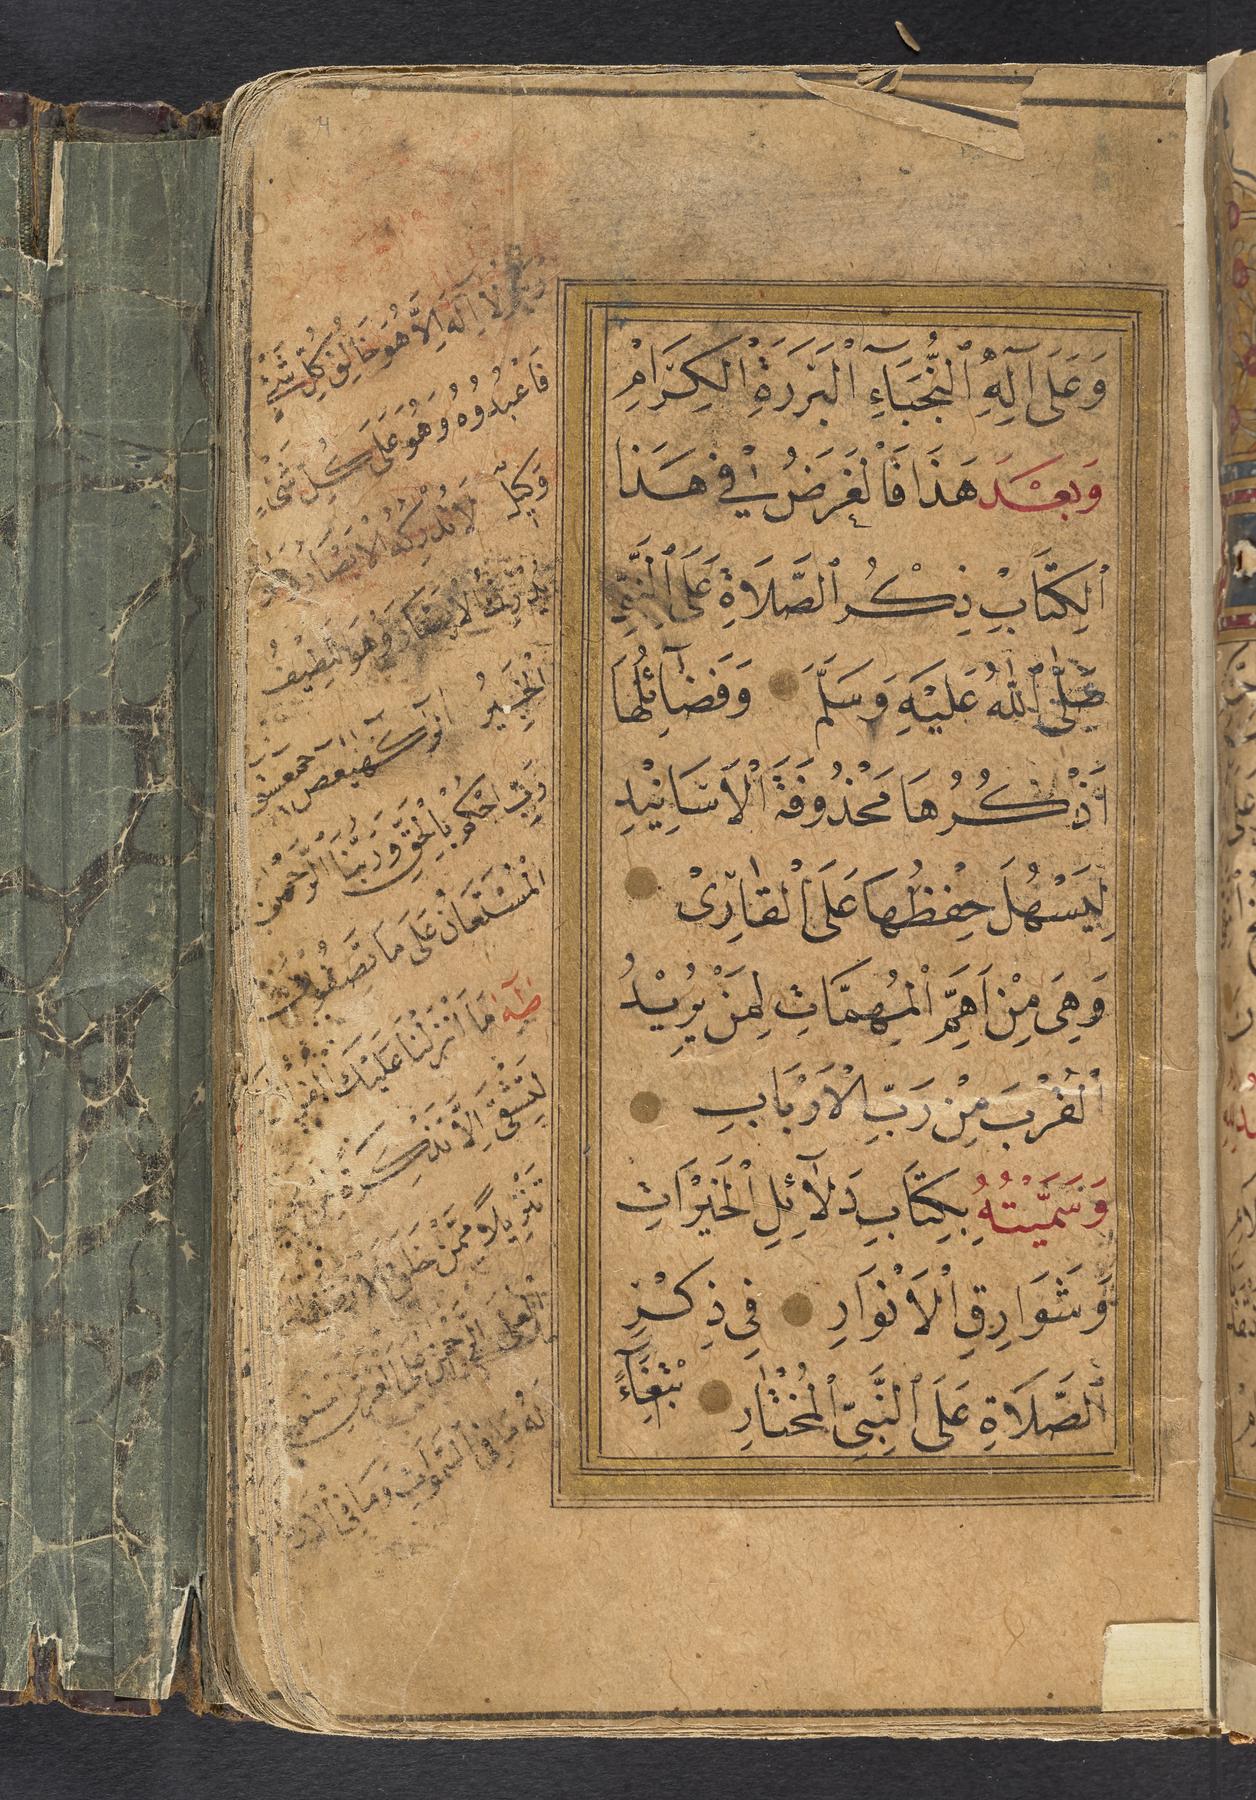 وَعَلَى آلِهِ ٱلنُّجَبَاءِ ٱلْبَرَرَةِ ٱلْكِرَامِ
وَبَعْدَ هَذَا فَالْغَرَضُ فِي هَذَا
ٱلْكِتَابِ ذِكْرُ ٱلصَّلَاةِ عَلَى ٱلنَّبِيِّ
صَلَّى ٱللهُ عَلَيْهِ وَسَلَّمَ وَفَضَائِلُهَا
أَذْكُرُهَا مَحْذُوفَةَ ٱلْأَسَانِيْدِ
لِيَسْهُلَ حِفْظُهَا عَلَى ٱلْقَارِىْ
وَهِيَ مِنْ اَهَمِّ ٱلْمُهِمَّاتِ لِمَنْ يُرِيْدُ
ٱلْقُرْبَ مِنْ رَبِّ ٱلْاَرْبَابِ
وَسَمَّيْتُهُ بِكِتَابِ دَلَآئِلِ ٱلْخَيْرَاتِ
وَشَوَارِقِ ٱلْأَنْوَارِ فِي ذِكْرِ
ٱلصَّلَاةِ عَلَى ٱلنَّبِيِّ ٱلْمُخْتَارِ بْتِغَآءً
لَا اِلَهَ اِلَّا هُوَ خَالِقُ كُلِّ شَيْءٍ
فَاعْبُدُوهُ وَهُوَ عَلَى كُلِّ شَيْءٍ
وَكِيلٌ لَا تُدْرِكُهُ الْاَبْصَارُ وَهُوَ
يُدْرِكُ الْاَبْصَارَ وَهُوَ اللَّطِيفُ
الْخَبِيرُ الٓرٰ كٓهٰيٰعٓصٓ حٓمٓعٓسٓقٓ
رَبِّ احْكُمْ بِالْحَقِّ وَرَبُّنَا الرَّحْمٰنُ
الْمُسْتَعَانُ عَلَى مَا تَصِفُونَ
طٰهٰ مَا اَنْزَلْنَا عَلَيْكَ الْقُرْآنَ
لِتَشْقَى اِلَّا تَذْكِرَةً لِمَنْ
تَنْزِيلًا مِمَّنْ خَلَقَ الْاَرْضَ
الْعُلَى الرَّحْمٰنُ عَلَى الْعَرْشِ اسْتَوَى
لَهُ مَا فِي السَّمٰوَاتِ وَمَا فِي الْاَرْضِ